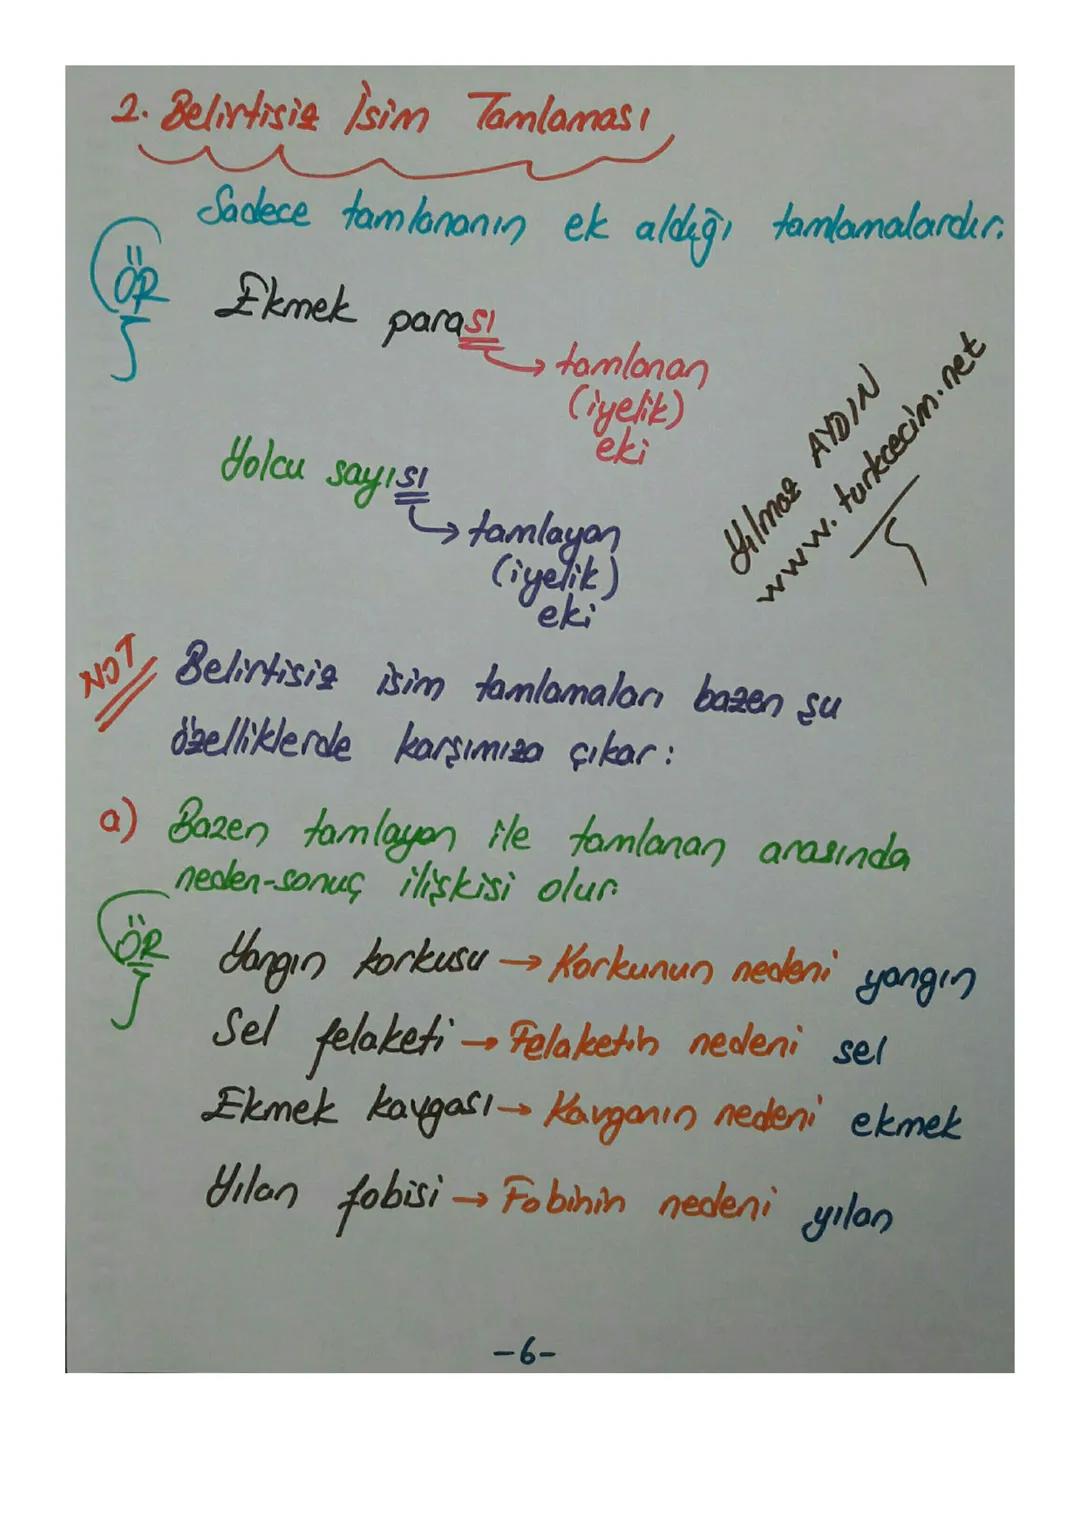 2. Belirtisiz İsim Tamlaması
Sadece tamlananın ek aldığı tamlamalardır.
ÖR
Ekmek parası
→ tamlanan
(iyelik)
eki
Yolcu sayısı
→ tamlayan
(iyelik)
eki
Yılmaz AYDIN
www.turkcecim.net
NOT
Belirtisiz isim tamlamaları bazen şu
özelliklerde karşımıza çıkar:
a) Bazen tamlayan ile tamlanan arasında
neden-sonuç ilişkisi olur.
ÖR
Yangın korkusu → Korkunun nedeni yangın
Sel felaketi → Felaketin nedeni sel
Ekmek kavgası → Kavganın nedeni ekmek
Yılan fobisi → Fobinin nedeni yılan
-6-